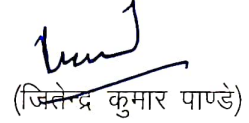 (जितेन्द्र कुमार पाण्डे)